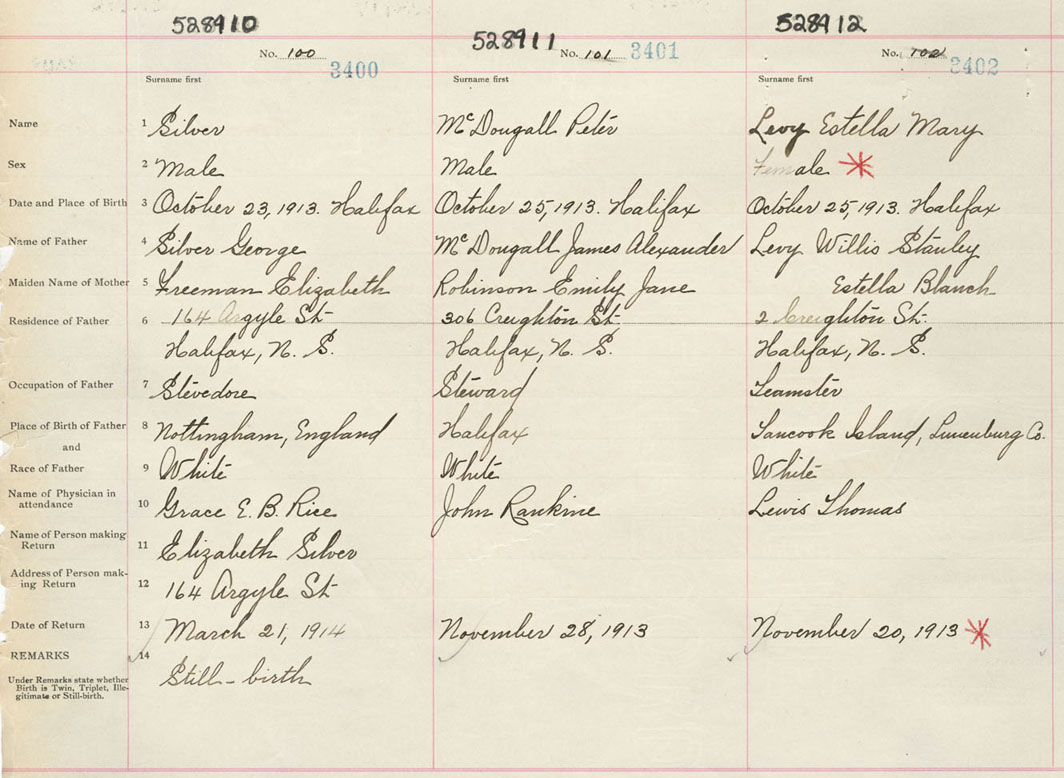 528910 528911 528912
No. 100 No. 101 No. 102
3400 3401 3402
Surname first Surname first Surname first
Name 1 Silver McDougall Peter Levy Estella Mary
Sex 2 Male Male Female
Date and Place of Birth 3 October 23, 1913. Halifax October 25, 1913. Halifax October 25, 1913. Halifax
Name of Father 4 Silver George McDougall James Alexander Levy Willis Stanley
Maiden Name of Mother 5 Freeman Elizabeth Robinson Emily Jane Estella Blanch
Residence of Father 6 164 Argyle St. 306 Creighton St. 2 Creighton St.
Halifax, N. S. Halifax, N. S. Halifax, N. S.
Occupation of Father 7 Stevedore Steward Teamster
Place of Birth of Father 8 Nottingham, England Halifax Tancook Island, Lunenburg Co.
and
Race of Father 9 White White White
Name of Physician in
attendance 10 Grace E. B. Rice John Rankine Lewis Thomas
Name of Person making
Return 11 Elizabeth Silver
Address of Person mak-
ing Return 12 164 Argyle St
Date of Return 13 March 21, 1914 November 28, 1913 November 20, 1913
REMARKS 14
Still-birth
Under Remarks state whether
Birth is Twin, Triplet, Ille-
gitimate or Still-birth.